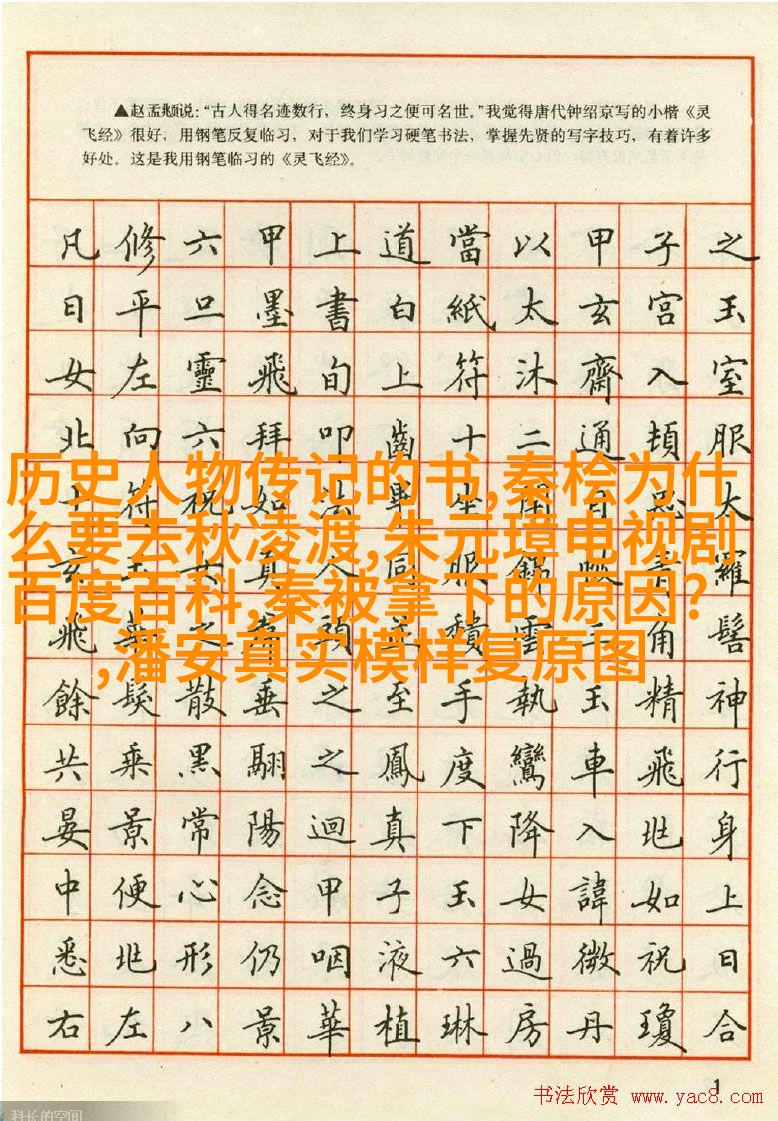 ▲赵孟頫说:“古人得名迹数行,终身习之便可名世。”我觉得唐代钟绍京写的小楷《灵
飞经》很好,用钢笔反复临习,对于我们学习硬笔书法,掌握先贤的写字技巧,有着许多
好处。这是我用钢笔临习的《灵飞经》。
凡修六甲上道當以甲子之
日平旦墨書白紙太玄宮玉
女左靈飛旬上符沐齋入室
北向六拜叩齒十二通頓服
十符祝如法畢坐閉目太
历史人物传记的书,秦桧为什
么要去秋凌渡,朱元璋电视剧
玄玉女真人同服錦帔青羅
百度百科,秦被拿下的原因?
飛之頭並積雲三角髻
,潘安真实模样复原图
餘髮散垂之至手執玉精神
共乘黑翮之鳳度鸞車飛行
晏景常陽迴真下降入兆身
中便心念甲子玉女諱如上
悉兆形仍咽液六過微祝日
右左八景華植琳房丹瓊合
1
书法欣赏 www.yac8.com
科长的空间